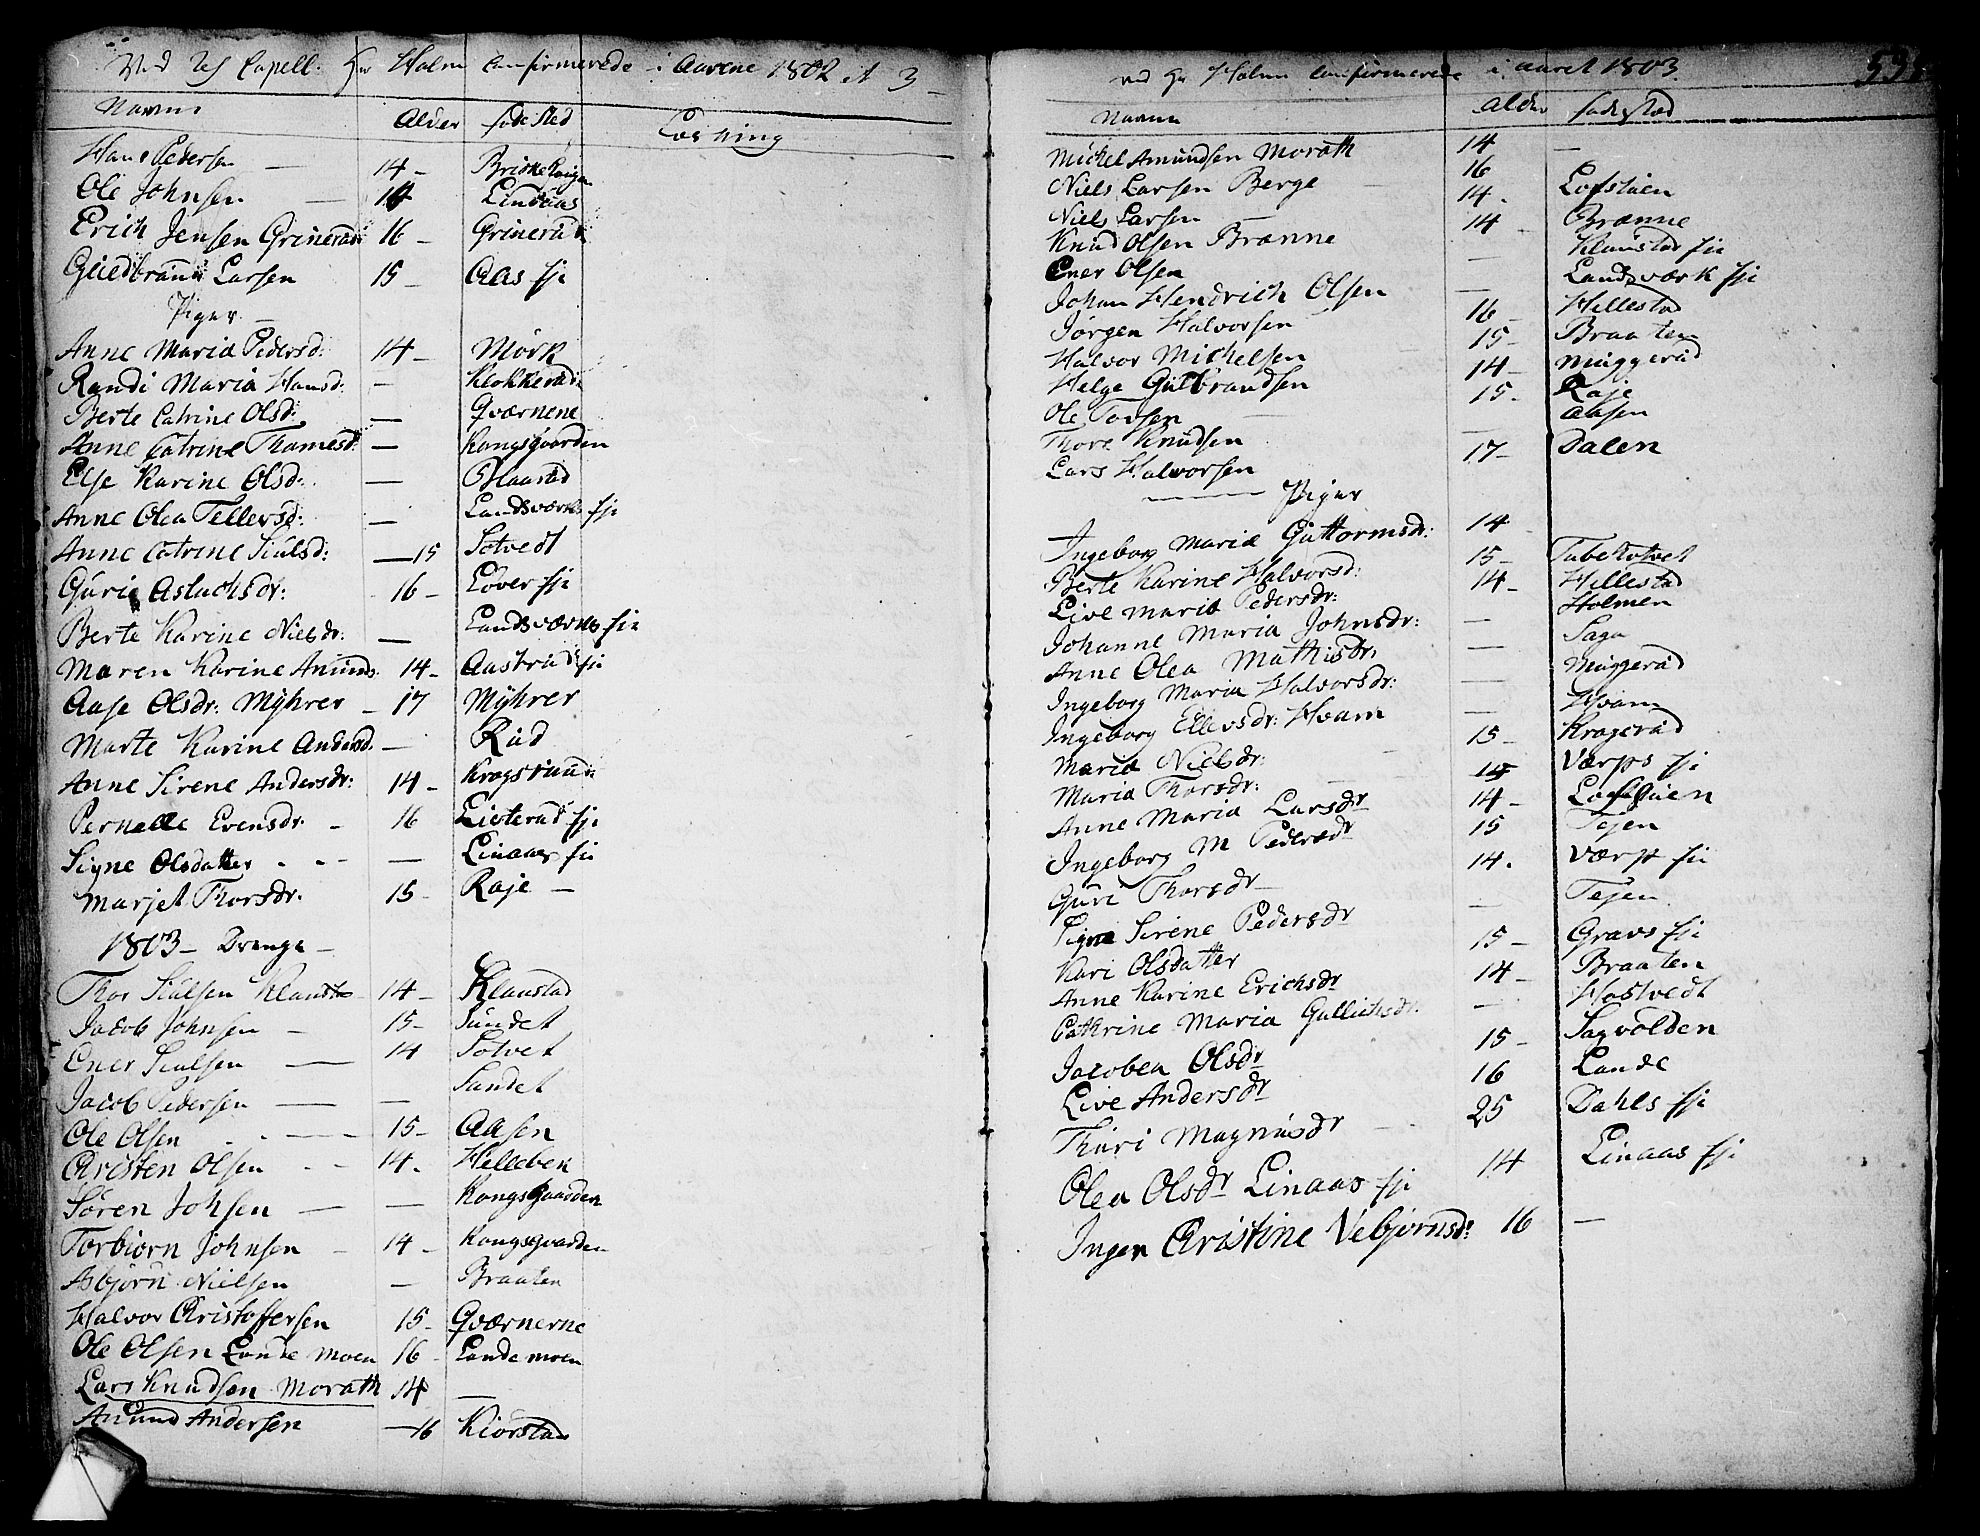 Ved Capell: Hr Holm Confirmerede i Aarene 1802 et 3
Navne Alder fode Sted
Hans Pedersen — 14 -
Ole Johnsen — Lindaas
Erich Jensen Grinerud 16 - Grinerud
Guldbrand Larsen 15 - Aas eje
Piger —
Anne Maria Pedersd: 14 - Mørk
Randi Maria Hansd: — Klokkerud
Berte Catrine Olsd: — Qværnene
Anne Catrine Thomesd: — Kongsgaarden
Else Karine Olsd: —
Anne Olea Tellevsd: — Landsværk eje
Anne Catrine Siulsd: — 15 Sotvedt
Gurie Aslachsdr: 16 - Løver eje
Berte Karine Nielsdr: — Landsværks eje
Maren Karine Amunds: 14 - Aasterud eje
Aase Olsdr: Myhrer - 17 Myhrer
Marte Karine Andersd. — Rud
Anne Sirene Andersdr: 14 -
Pernelle Evensdr. - 16 Listerud eje
Signe Olsdatter - - - — Linaas eje
Marjet Thorsdr. 15 - Raje —
1803 - Drenge —
Thor Siulsen 14 - Klaustad
Jacob Johnsen — 15 - Sundet
Ener Siulsen — 14 Sotvet
Jacob Pedersen — — Sundet
Ole Olsen - - — 15 - Aasen
Christen Olsen - - 14 - Hellebek
Søren Johsen — — Kongsgaarden
Torbiørn Johnsen - 14 - Kongsgaarden
Asbjørn Nielsen — Braaten
Halvor Christoffersen 15 - Qværnerne
Ole Olsen Lande moen 16 - Lande moen
Lars Knudsen Morath 14 —
Amund Andersen — 16 Kiørstad
ved Hr Holm Confirmerede i aaret 1803
Navne Alder fode stad
Michel Amundsen Morath 14 —
Niels Larsen Berge 16
Niels Larsen 14 - Lofstuen
Knud Olsen Brænne 14 - Brænne
Ener Olsen — Klaustad eje
Johan Hendrich Olsen — Landsværk eje
Jørgen Halvorsen 16 - Hillestad
Halvor Michelsen 15 - Braaten
Helge Gulbrandsen 14 - Muggerud
Ole Torsen — 15 - Raje
Thore Knudsen — Aasen
Lars Halvorsen 17 - Dalen
— Piger
Ingeborg Maria Guttormsdr: 14 -
Berte Karine Halvorsd: 15 -
Live Maria Pedersdr: 14 - Hillestad
Johanne Maria Johnsdr: — Holmen
Anne Olea Mathisdr: — Saga
Ingeborg Maria Halvorsdr: — Muggerud
Ingeborg Ellevsdr: Hvam — Hvam
Maria Nielsdr: 15 - Kragerud
Maria Thorsdr: Værps eje
Anne Maria Larsdr 14 - Lofstuen
Ingeborg M Pedersdr 15 Tejen
Guri Thorsdr 14 - Værp eje
Signe Sirene Pedersdr — Tejen
Kari Olsdatter 15 - Gravs eje
Anne Karine Erichsdr 14 - Braaten
Cathrine Maria Gullichsdr: — Hostvedt
Jacobea Olsdr 15 - Sagvolden
Live Andersdr 16 Lande
Thuri Magnusdr - - 25 Dahls eje
Olea Olsdr Linaas eje 14 Linaas eje
Inger Christine Vebjørnsd: 16 —